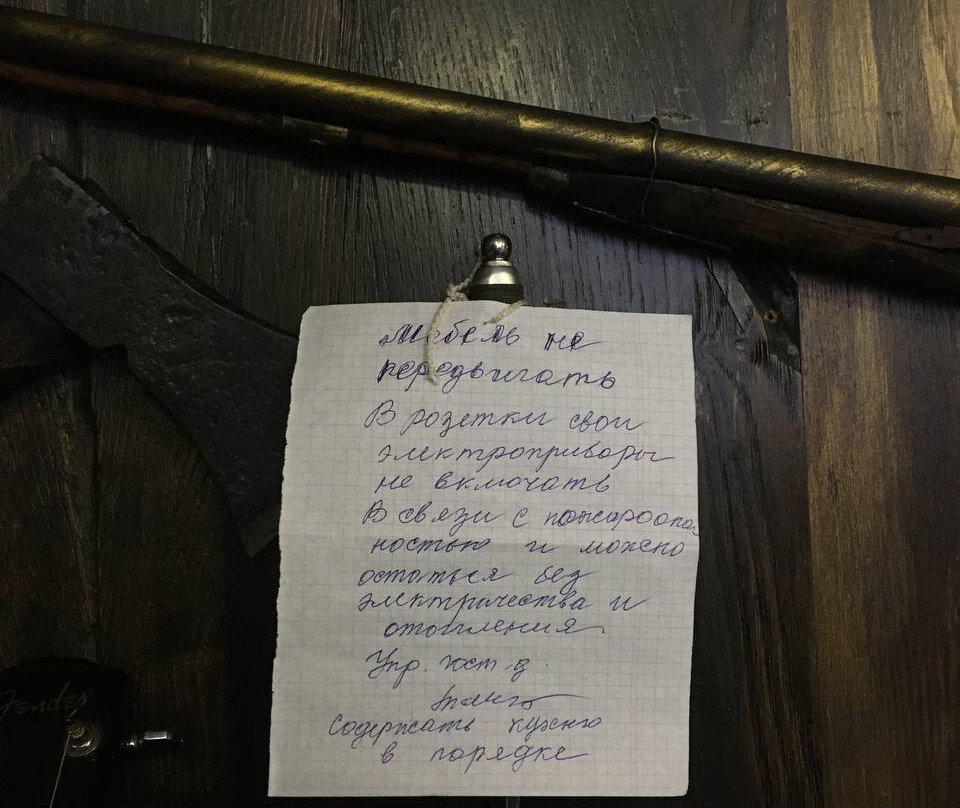 Мебель не
передвигать
В розетки свои
электроприборы
не включать
В связи с пожароопас
ностью и можно
остаться без
электричества и
отопления.
Упр. гост. д.
Содержать кухню
в порядке
Fender